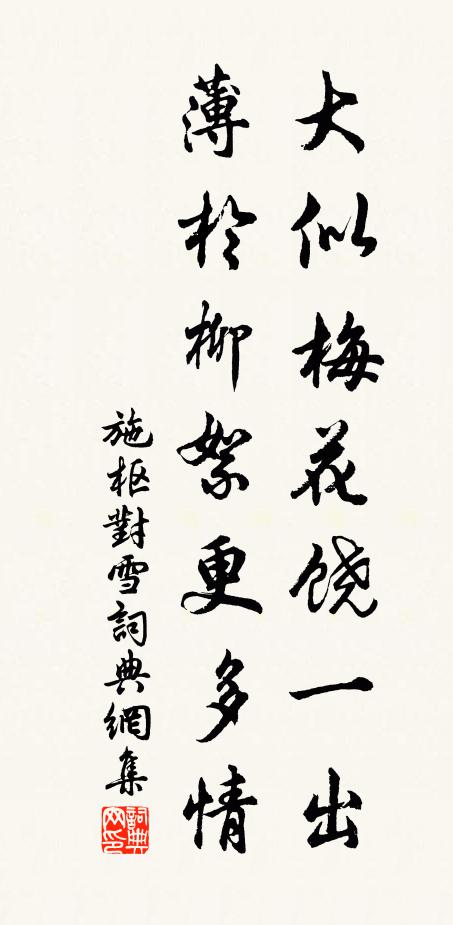 大似梅花饶一出
薄於柳絮更多情
施枢對雪詞典網集
詞典网印